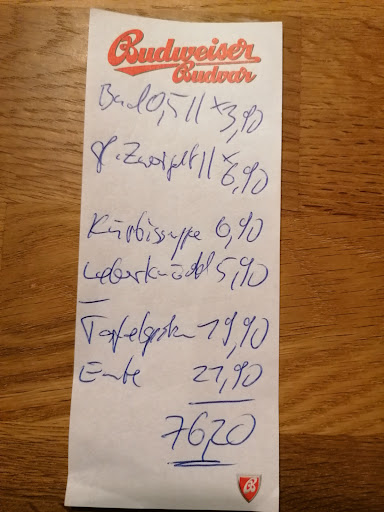 Budweiser
Budvar
Bud 0,5 || x 3,90
Zweigelt || x 6,90
Kürbissuppe 6,90
Leberknödl 5,90
–
Tafelspitz 19,90
Ente 21,90
76,20
B